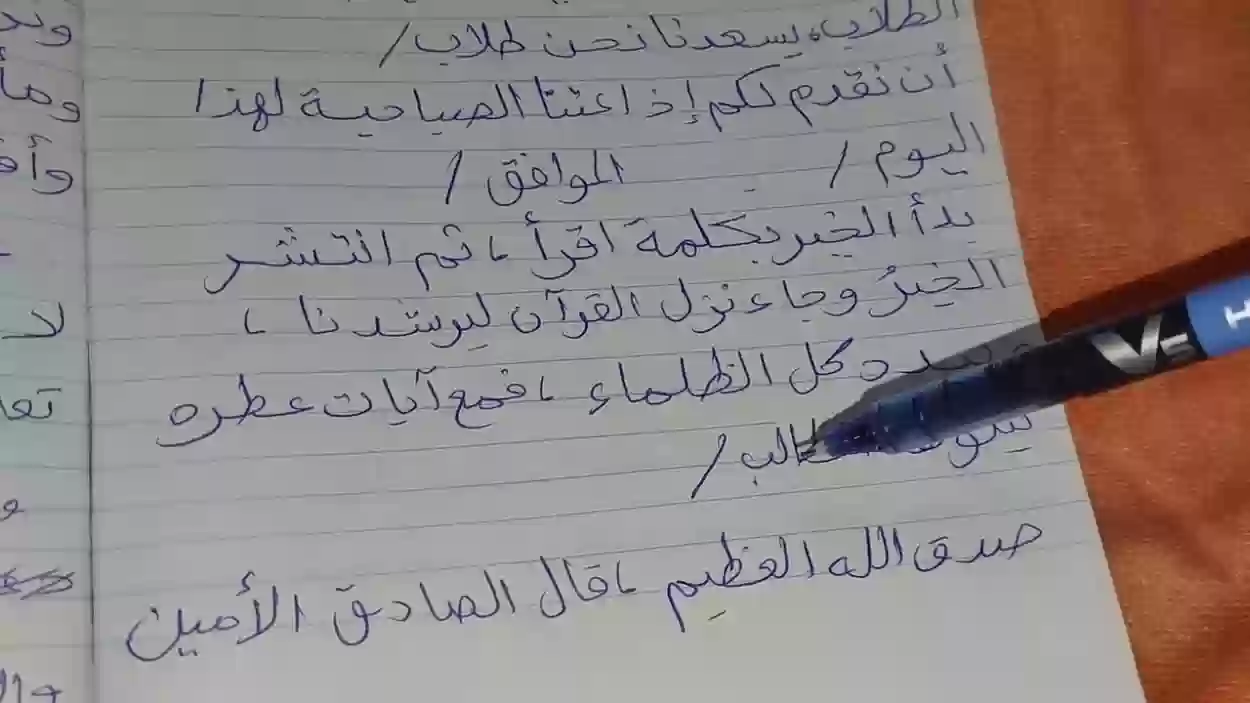 الطلاب، يسعدنا نحن طلاب/
أن نقدم لكم إذاعتنا الصباحية لهذا
اليوم / الموافق /
بدأ الخير بكلمة اقرأ، ثم انتشر
الخيرُ وجاء نزل القرآن ليرشدنا،
كل الظلماء، فمع آيات عطره
صدق الله العظيم، قال الصادق الأمين